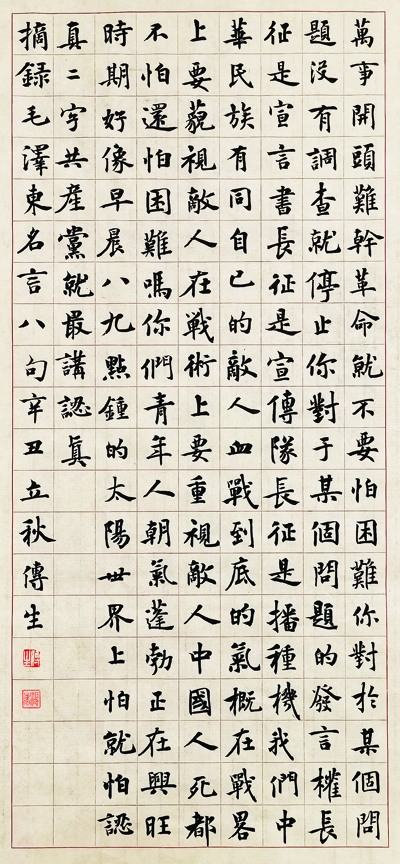 萬事開頭難幹革命就不要怕困難你對於某個問
題沒有調查就停止你對于某個問題的發言權長
征是宣言書長征是宣傳隊長征是播種機我們中
華民族有同自己的敵人血戰到底的氣概在戰畧
上要藐視敵人在戰術上要重視敵人中國人死都
不怕還怕困難嗎你們青年人朝氣蓬勃正在興旺
時期好像早晨八九點鍾的太陽世界上怕就怕認
真二字共產黨就最講認眞
摘録毛澤東名言八句辛丑立秋傳生